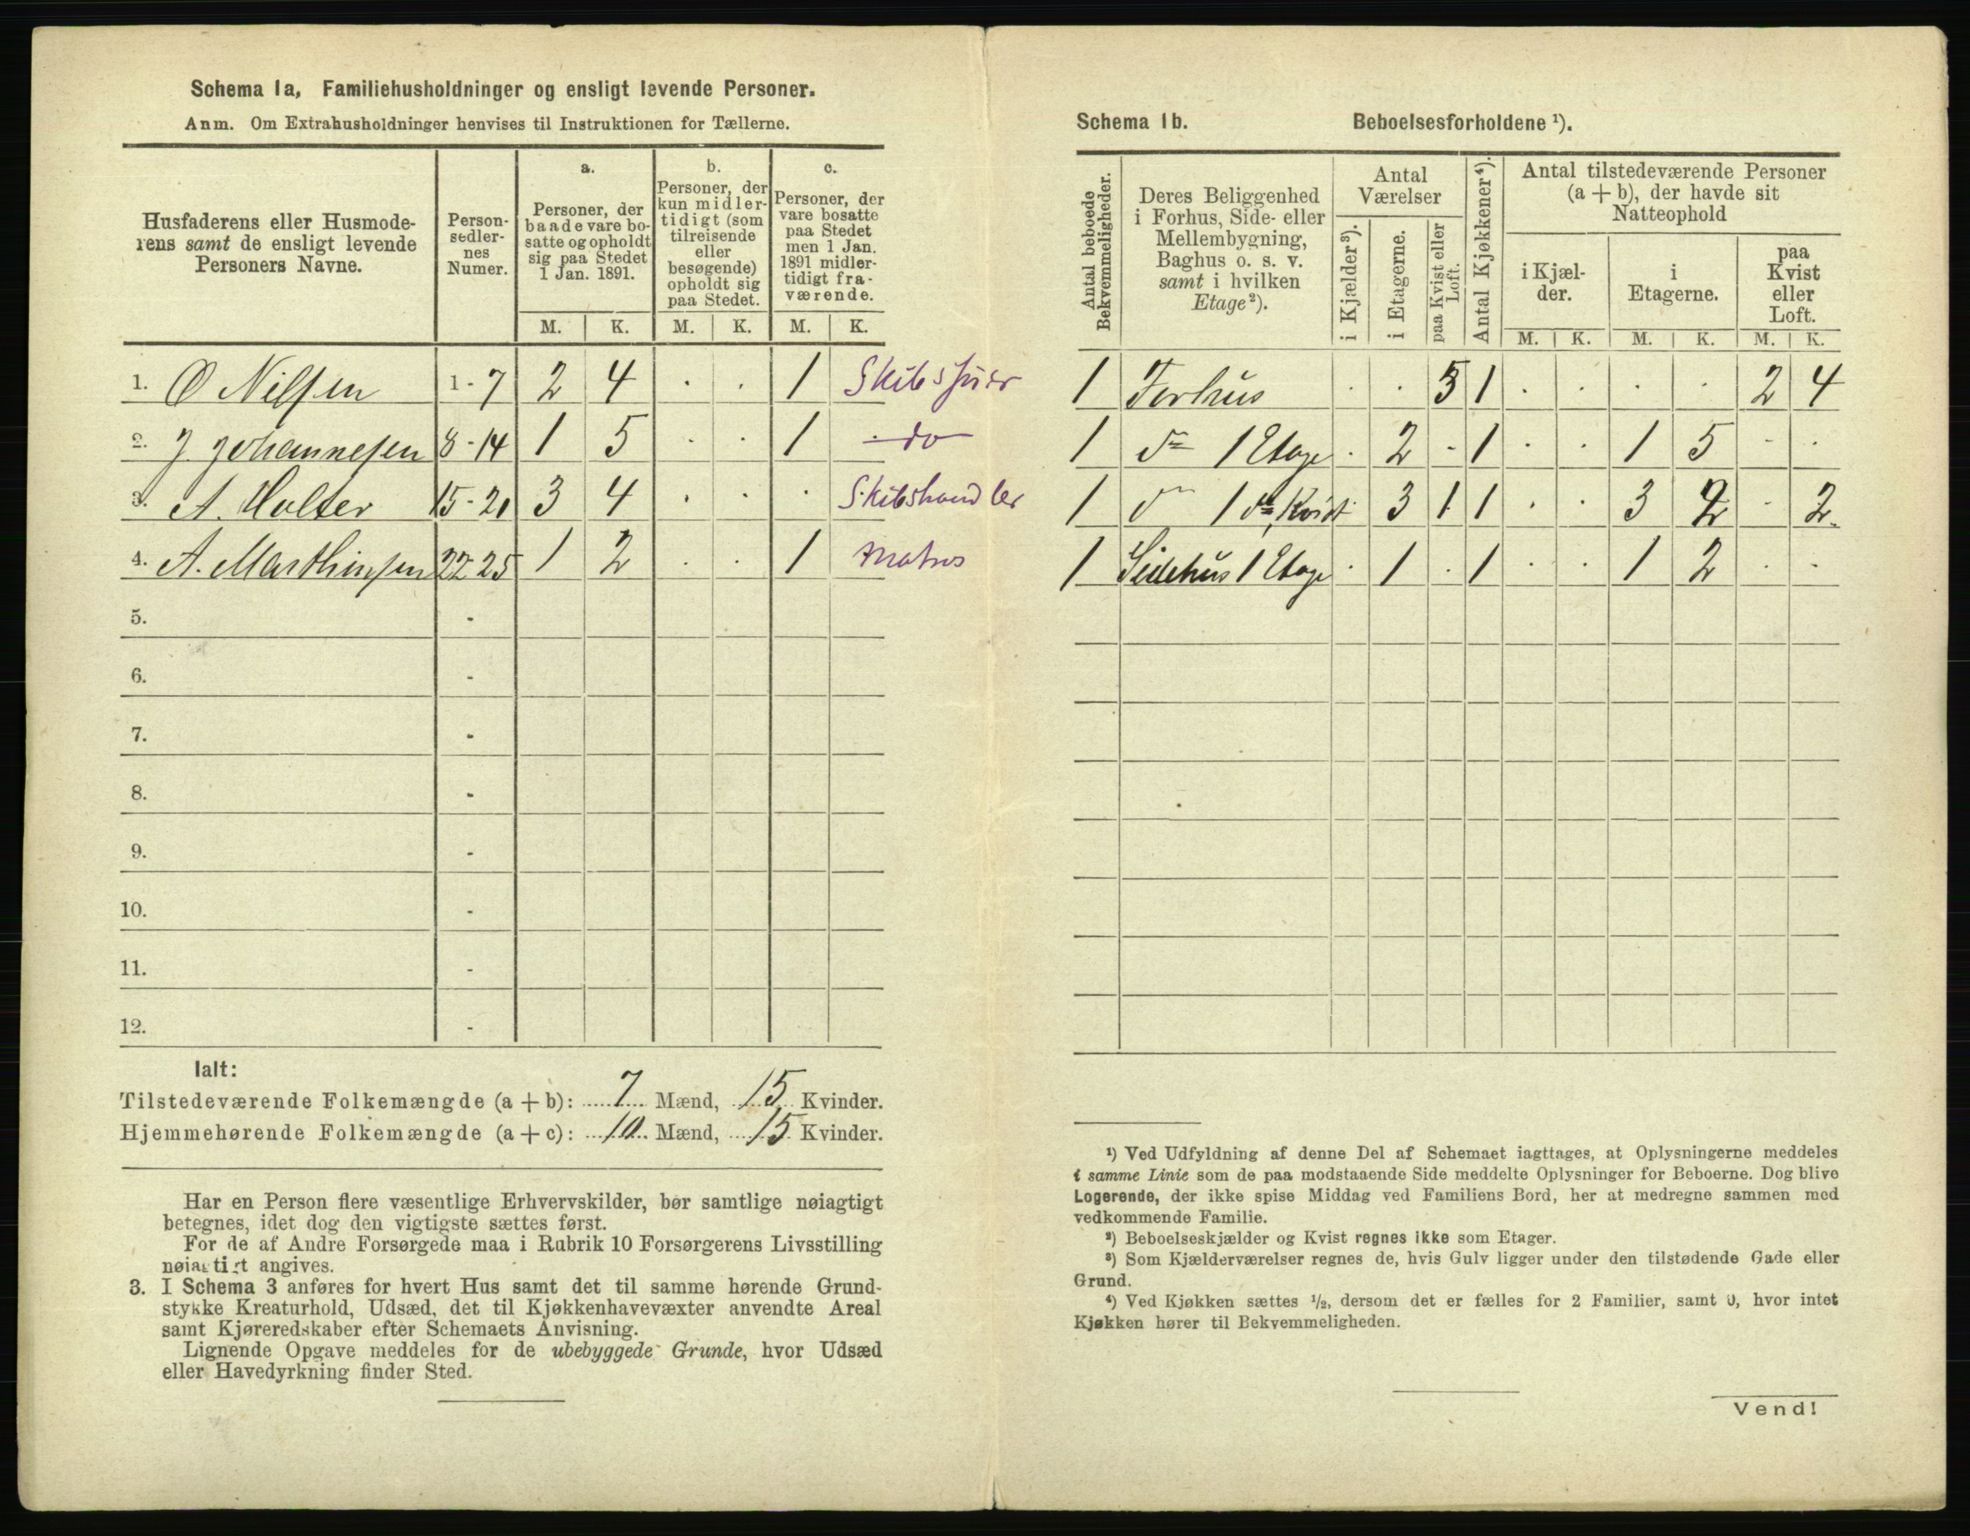 Schema 1a, Familiehusholdninger og ensligt levende Personer.
Anm. Om Extrahusholdninger henvises til Instruktionen for Tællerne.
Husfaderens eller Husmode-
rens samt de ensligt levende
Personers Navne.
Person-
sedler-
nes
Numer.
a.
Personer, der
baade vare bo-
satte og opholdt
sig paa Stedet
1 Jan. 1891.
b.
Personer, der
kun midler-
tidigt (som
tilreisende
eller
besøgende)
opholdt sig
paa Stedet.
c.
Personer, der
vare bosatte
paa Stedet
men 1 Jan.
1891 midler-
tidigt fra-
værende.
M. K. M. K. M. K.
1. O Nilsen 1 - 7 2 4 . . 1 Skibsfører
2. J. Johannesen 8 - 14 1 5 . . 1 do
3. A. Holter 15 - 21 3 4 . . . Skibshandler
4. A. Marthinsen 22 25 1 2 . . 1 Matros
5. -
6. -
7. -
8. -
9. -
10. -
11. -
12. -
Ialt:
Tilstedeværende Folkemængde (a + b): 7 Mænd, 15 Kvinder.
Hjemmehørende Folkemængde (a + c): 10 Mænd, 15 Kvinder.
Har en Person flere væsentlige Erhvervskilder, bør samtlige nøiagtigt
betegnes, idet dog den vigtigste sættes først.
For de af Andre Forsørgede maa i Rubrik 10 Forsørgerens Livsstilling
nøiagtigt angives.
3. I Schema 3 anføres for hvert Hus samt det til samme hørende Grund-
stykke Kreaturhold, Udsæd, det til Kjøkkenhavevæxter anvendte Areal
samt Kjøreredskaber efter Schemaets Anvisning.
Lignende Opgave meddeles for de ubebyggede Grunde, hvor Udsæd
eller Havedyrkning finder Sted.
Schema 1b. Beboelsesforholdene ¹).
Antal beboede
Bekvemmeligheder.
Deres Beliggenhed
i Forhus, Side- eller
Mellembygning,
Baghus o. s. v.
samt i hvilken
Etage²).
Antal
Værelser
i Kjælder³).
i Etagerne.
paa Kvist eller
Loft.
Antal Kjøkkener⁴).
Antal tilstedeværende Personer
(a + b), der havde sit
Natteophold
i Kjæl-
der.
i
Etagerne.
paa
Kvist
eller
Loft.
M. K. M. K. M. K.
1 Forhus . . 3 1 . . . . 2 4
1 do 1 Etage . 2 . 1 . . 1 5 . .
1 do 1 do, Kvist . 3 1 1 . . 3 2 . 2
1 Sidehus 1 Etage . 1 . 1 . . 1 2 . .
¹) Ved Udfyldning af denne Del af Schemaet iagttages, at Oplysningerne meddeles
i samme Linie som de paa modstaaende Side meddelte Oplysninger for Beboerne. Dog blive
Logerende, der ikke spise Middag ved Familiens Bord, her at medregne sammen med
vedkommende Familie.
²) Beboelseskjælder og Kvist regnes ikke som Etager.
³) Som Kjælderværelser regnes de, hvis Gulv ligger under den tilstødende Gade eller
Grund.
⁴) Ved Kjøkken sættes ½, dersom det er fælles for 2 Familier, samt 0, hvor intet
Kjøkken hører til Bekvemmeligheden.
Vend!